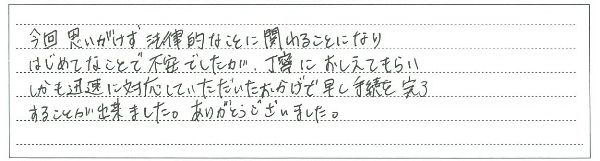 今回思いがけず法律的なことに関わることになり
はじめてなことで不安でしたが、丁寧におしえてもらい
しかも迅速に対応していただいたおかげで早し手続を完了
することが出来ました。ありがとうございました。